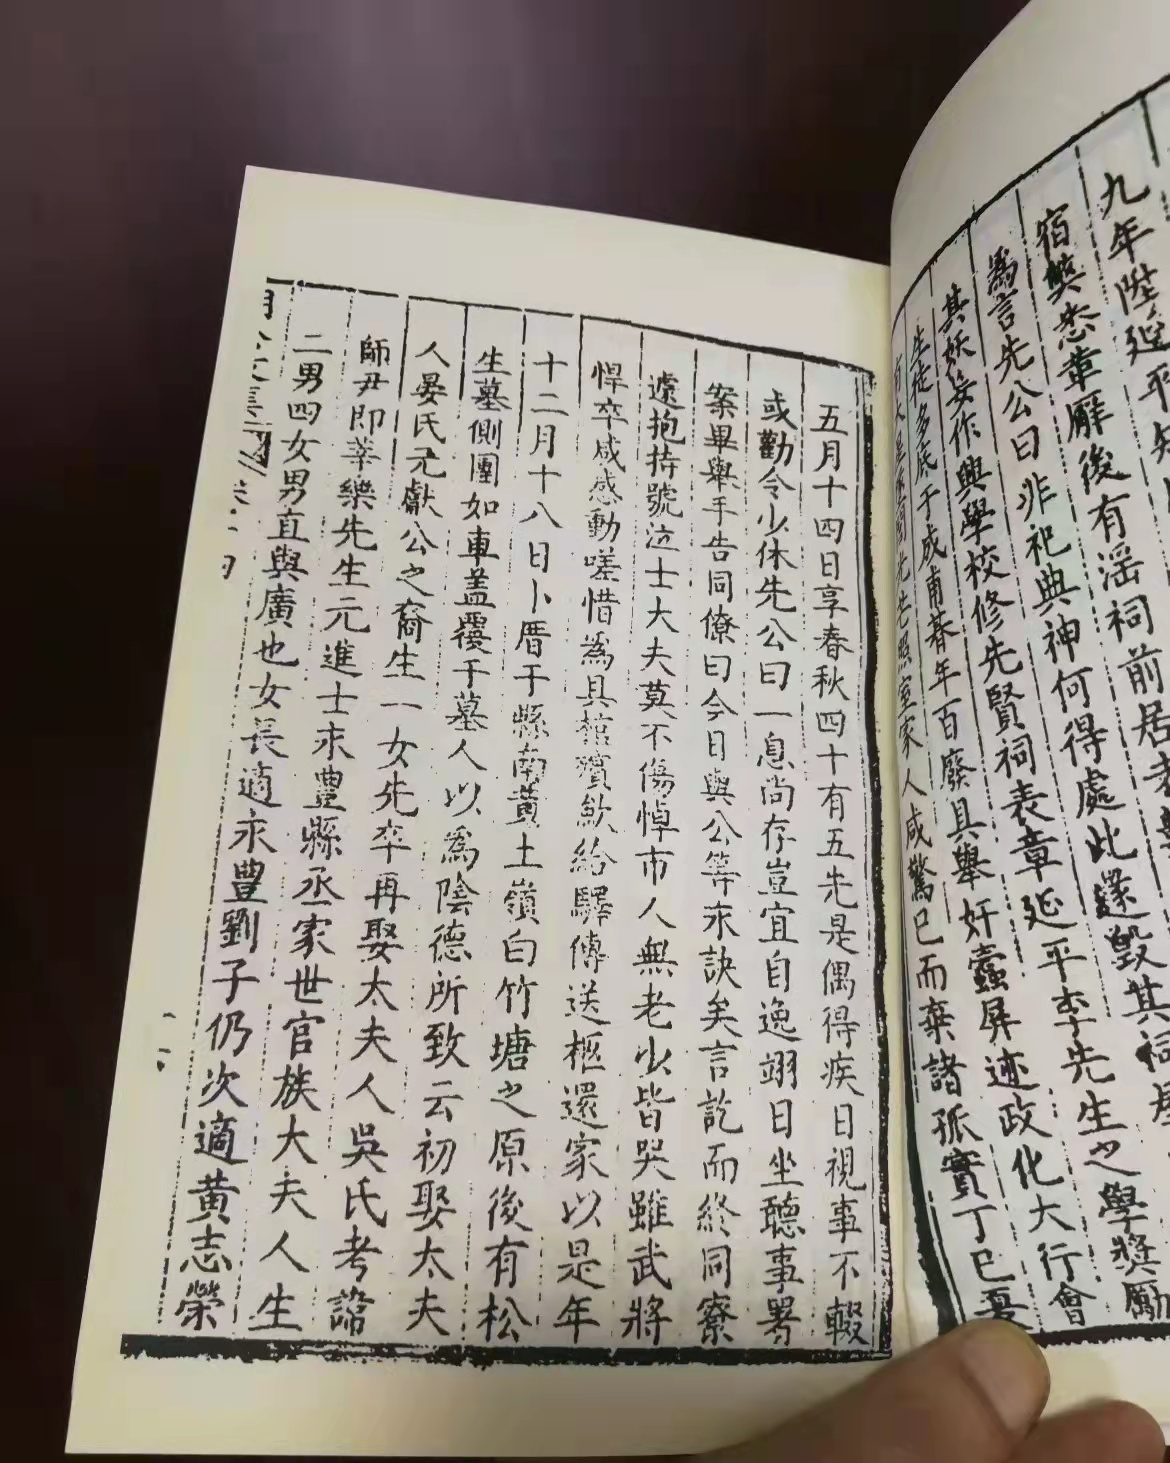 九年陞延平知
宿獘悉革厥後有滛祠前居
為言先公曰非祀典神何得處此遂毀其祠
其妖妄作興學校修先賢祠表章延平李先生之學奬勵
生徒多底于成甫朞年百廢具舉奸蠹屏迹政化大行會
家人咸驚已而棄諸孤實丁巳夏
五月十四日享春秋四十有五先是偶得疾日視事不輟
或勸令少休先公曰一息尚存豈宜自逸翊日坐聽事署
案畢舉手告同僚曰今日與公等永訣矣言訖而終同寮
遽抱持號泣士大夫莫不傷悼市人無老少皆哭雖武將
悍卒咸感動嗟惜為具棺殯歛給驛傳送柩還家以是年
十二月十八日卜厝于縣南黄土嶺白竹塘之原後有松
生墓側團如車盖覆于墓人以為陰德所致云初娶太夫
人晏氏元獻公之裔生一女先卒再娶太夫人吳氏考諱
師尹即莘樂先生元進士永豐縣丞家世官族大夫人生
二男四女男直與廣也女長適永豐劉子仍次適黄志榮